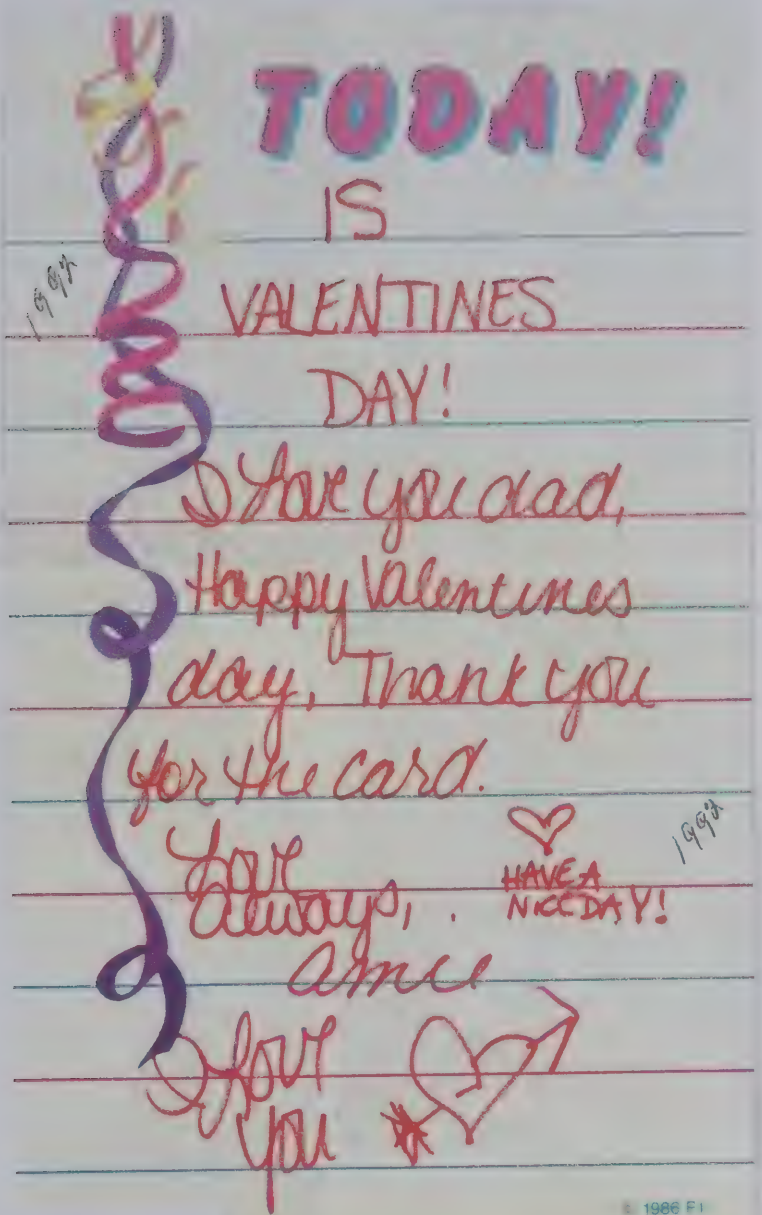 TODAY!
IS
1992
VALENTINES
DAY!
I Love you dad,
Happy Valentines
day, Thank you
for the card.
Love
always,
HAVE A
NICE DAY!
1992
amie
I Love
you
© 1986 F I